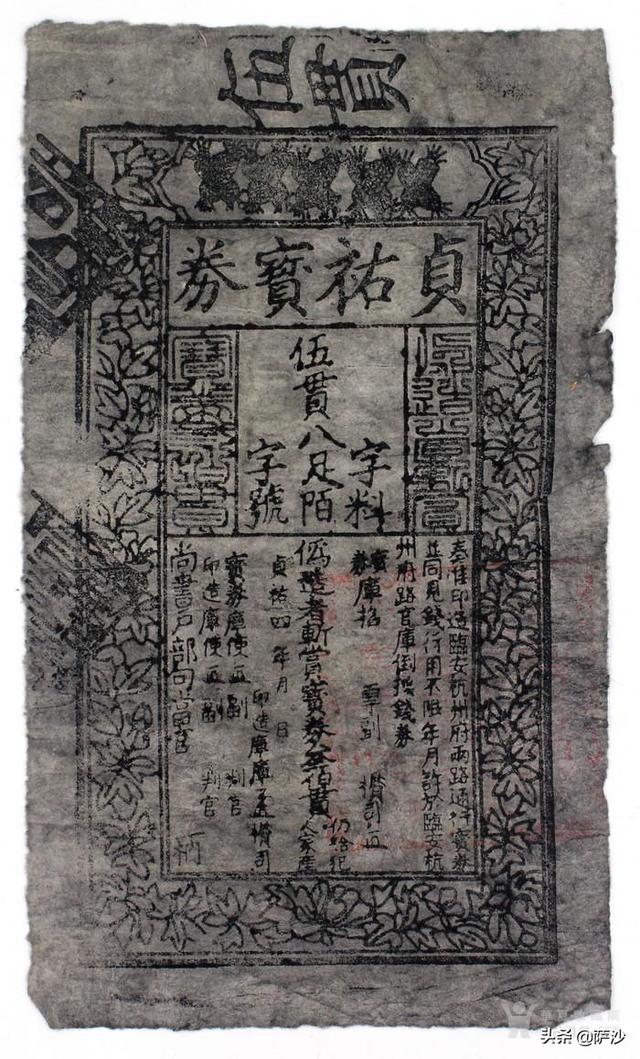 伍貫
貞祐寶券
字料
伍貫八足陌
字號
奉准印造臨安杭州府兩路通行寶券
並同見錢行用不限年月許於臨安杭
州府路官庫倒換錢券
寶券庫掐 覃副 攢司
偽造者斬賞寶券叁佰貫 仍給犯人家產
貞祐四年 月 日
印造庫庫子 攢司
寶券庫使 副 判官
印造庫使 副 判官
尚書戶部勾當官
头条 @萨沙